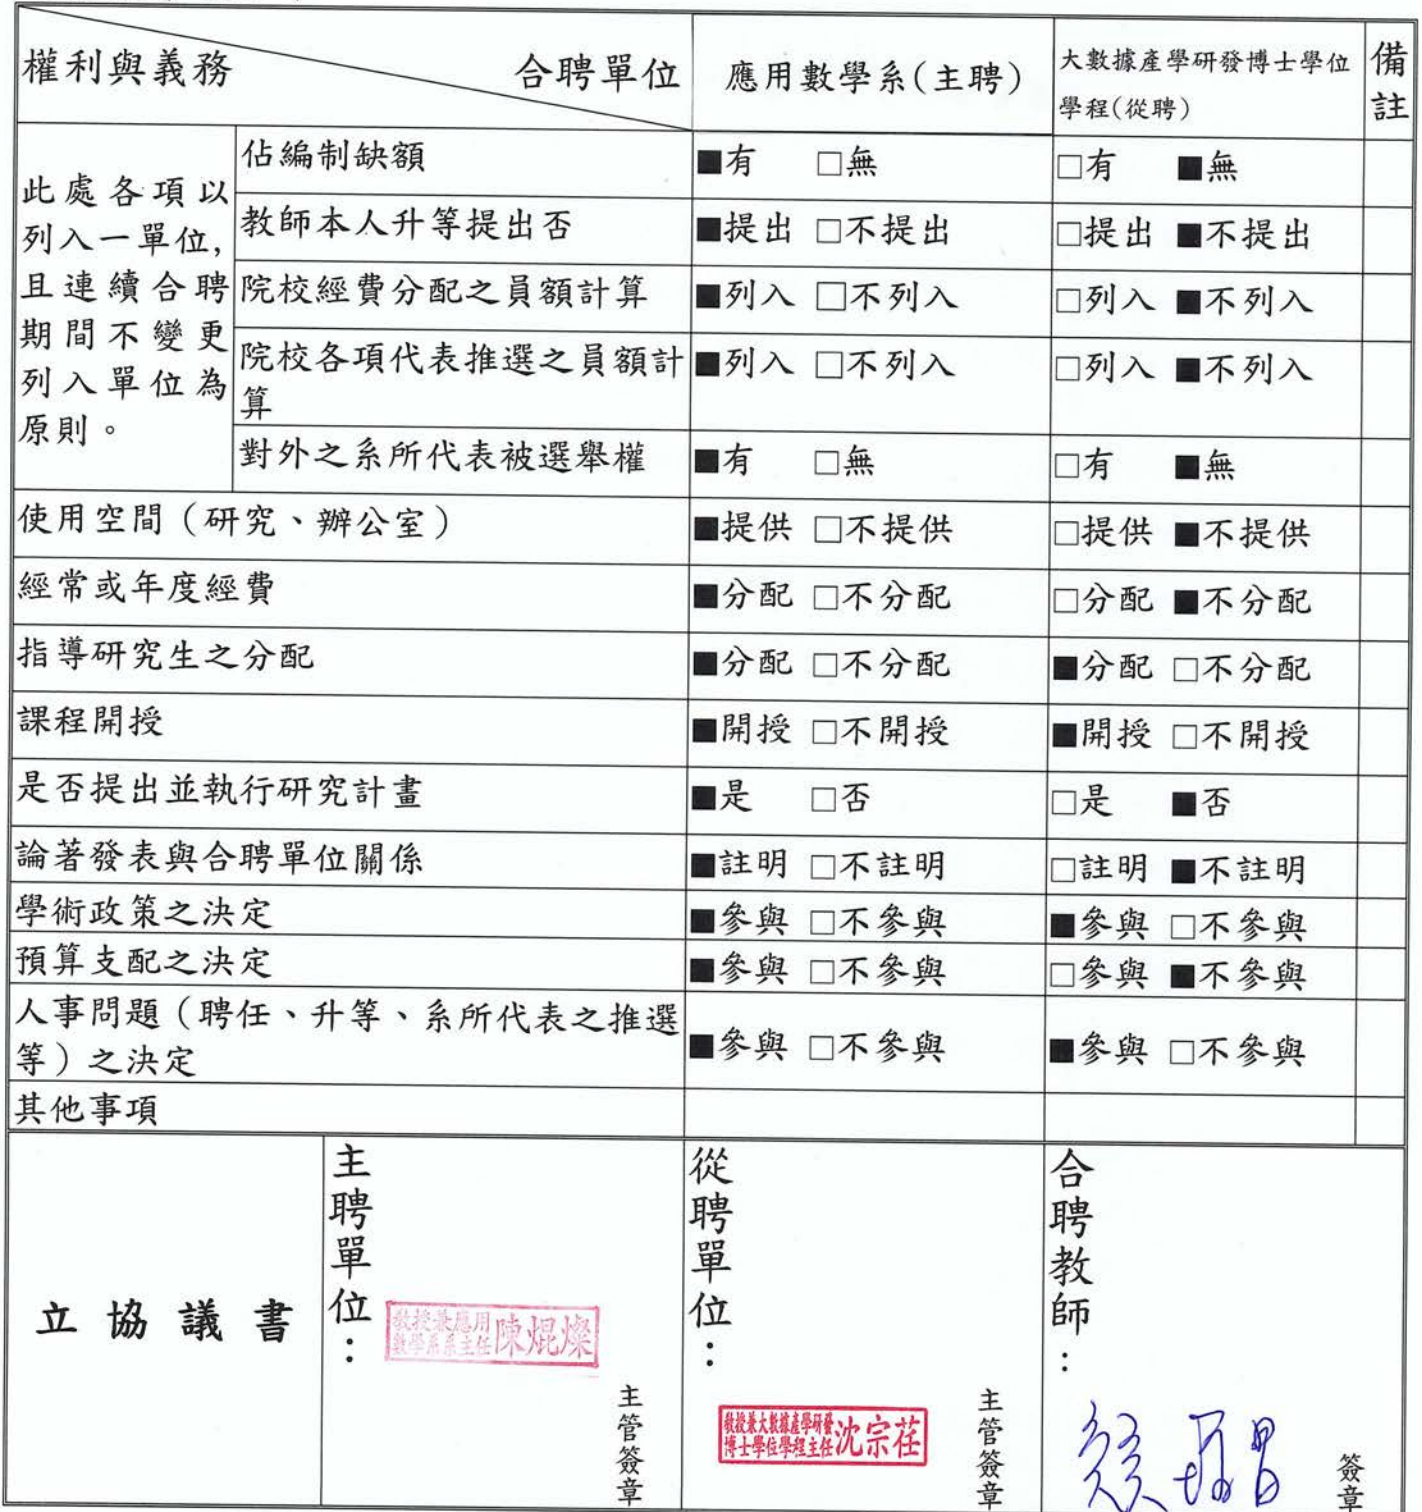 權利與義務 合聘單位 應用數學系(主聘) 大數據產學研發博士學位 備
學程(從聘) 註
此處各項以
列入一單位,
且連續合聘
期間不變更
列入單位為
原則。
佔編制缺額 ■有 □無 □有 ■無
教師本人升等提出否 ■提出 □不提出 □提出 ■不提出
院校經費分配之員額計算 ■列入 □不列入 □列入 ■不列入
院校各項代表推選之員額計 ■列入 □不列入 □列入 ■不列入
算
對外之系所代表被選舉權 ■有 □無 □有 ■無
使用空間(研究、辦公室) ■提供 □不提供 □提供 ■不提供
經常或年度經費 ■分配 □不分配 □分配 ■不分配
指導研究生之分配 ■分配 □不分配 ■分配 □不分配
課程開授 ■開授 □不開授 ■開授 □不開授
是否提出並執行研究計畫 ■是 □否 □是 ■否
論著發表與合聘單位關係 ■註明 □不註明 □註明 ■不註明
學術政策之決定 ■參與 □不參與 ■參與 □不參與
預算支配之決定 ■參與 □不參與 □參與 ■不參與
人事問題(聘任、升等、系所代表之推選
等)之決定 ■參與 □不參與 ■參與 □不參與
其他事項
立協議書
主聘單位:
教授兼應用
數學系系主任 陳焜燦
主管簽章
從聘單位:
教授兼大數據產學研發
博士學位學程主任 沈宗荏
主管簽章
合聘教師:
簽章